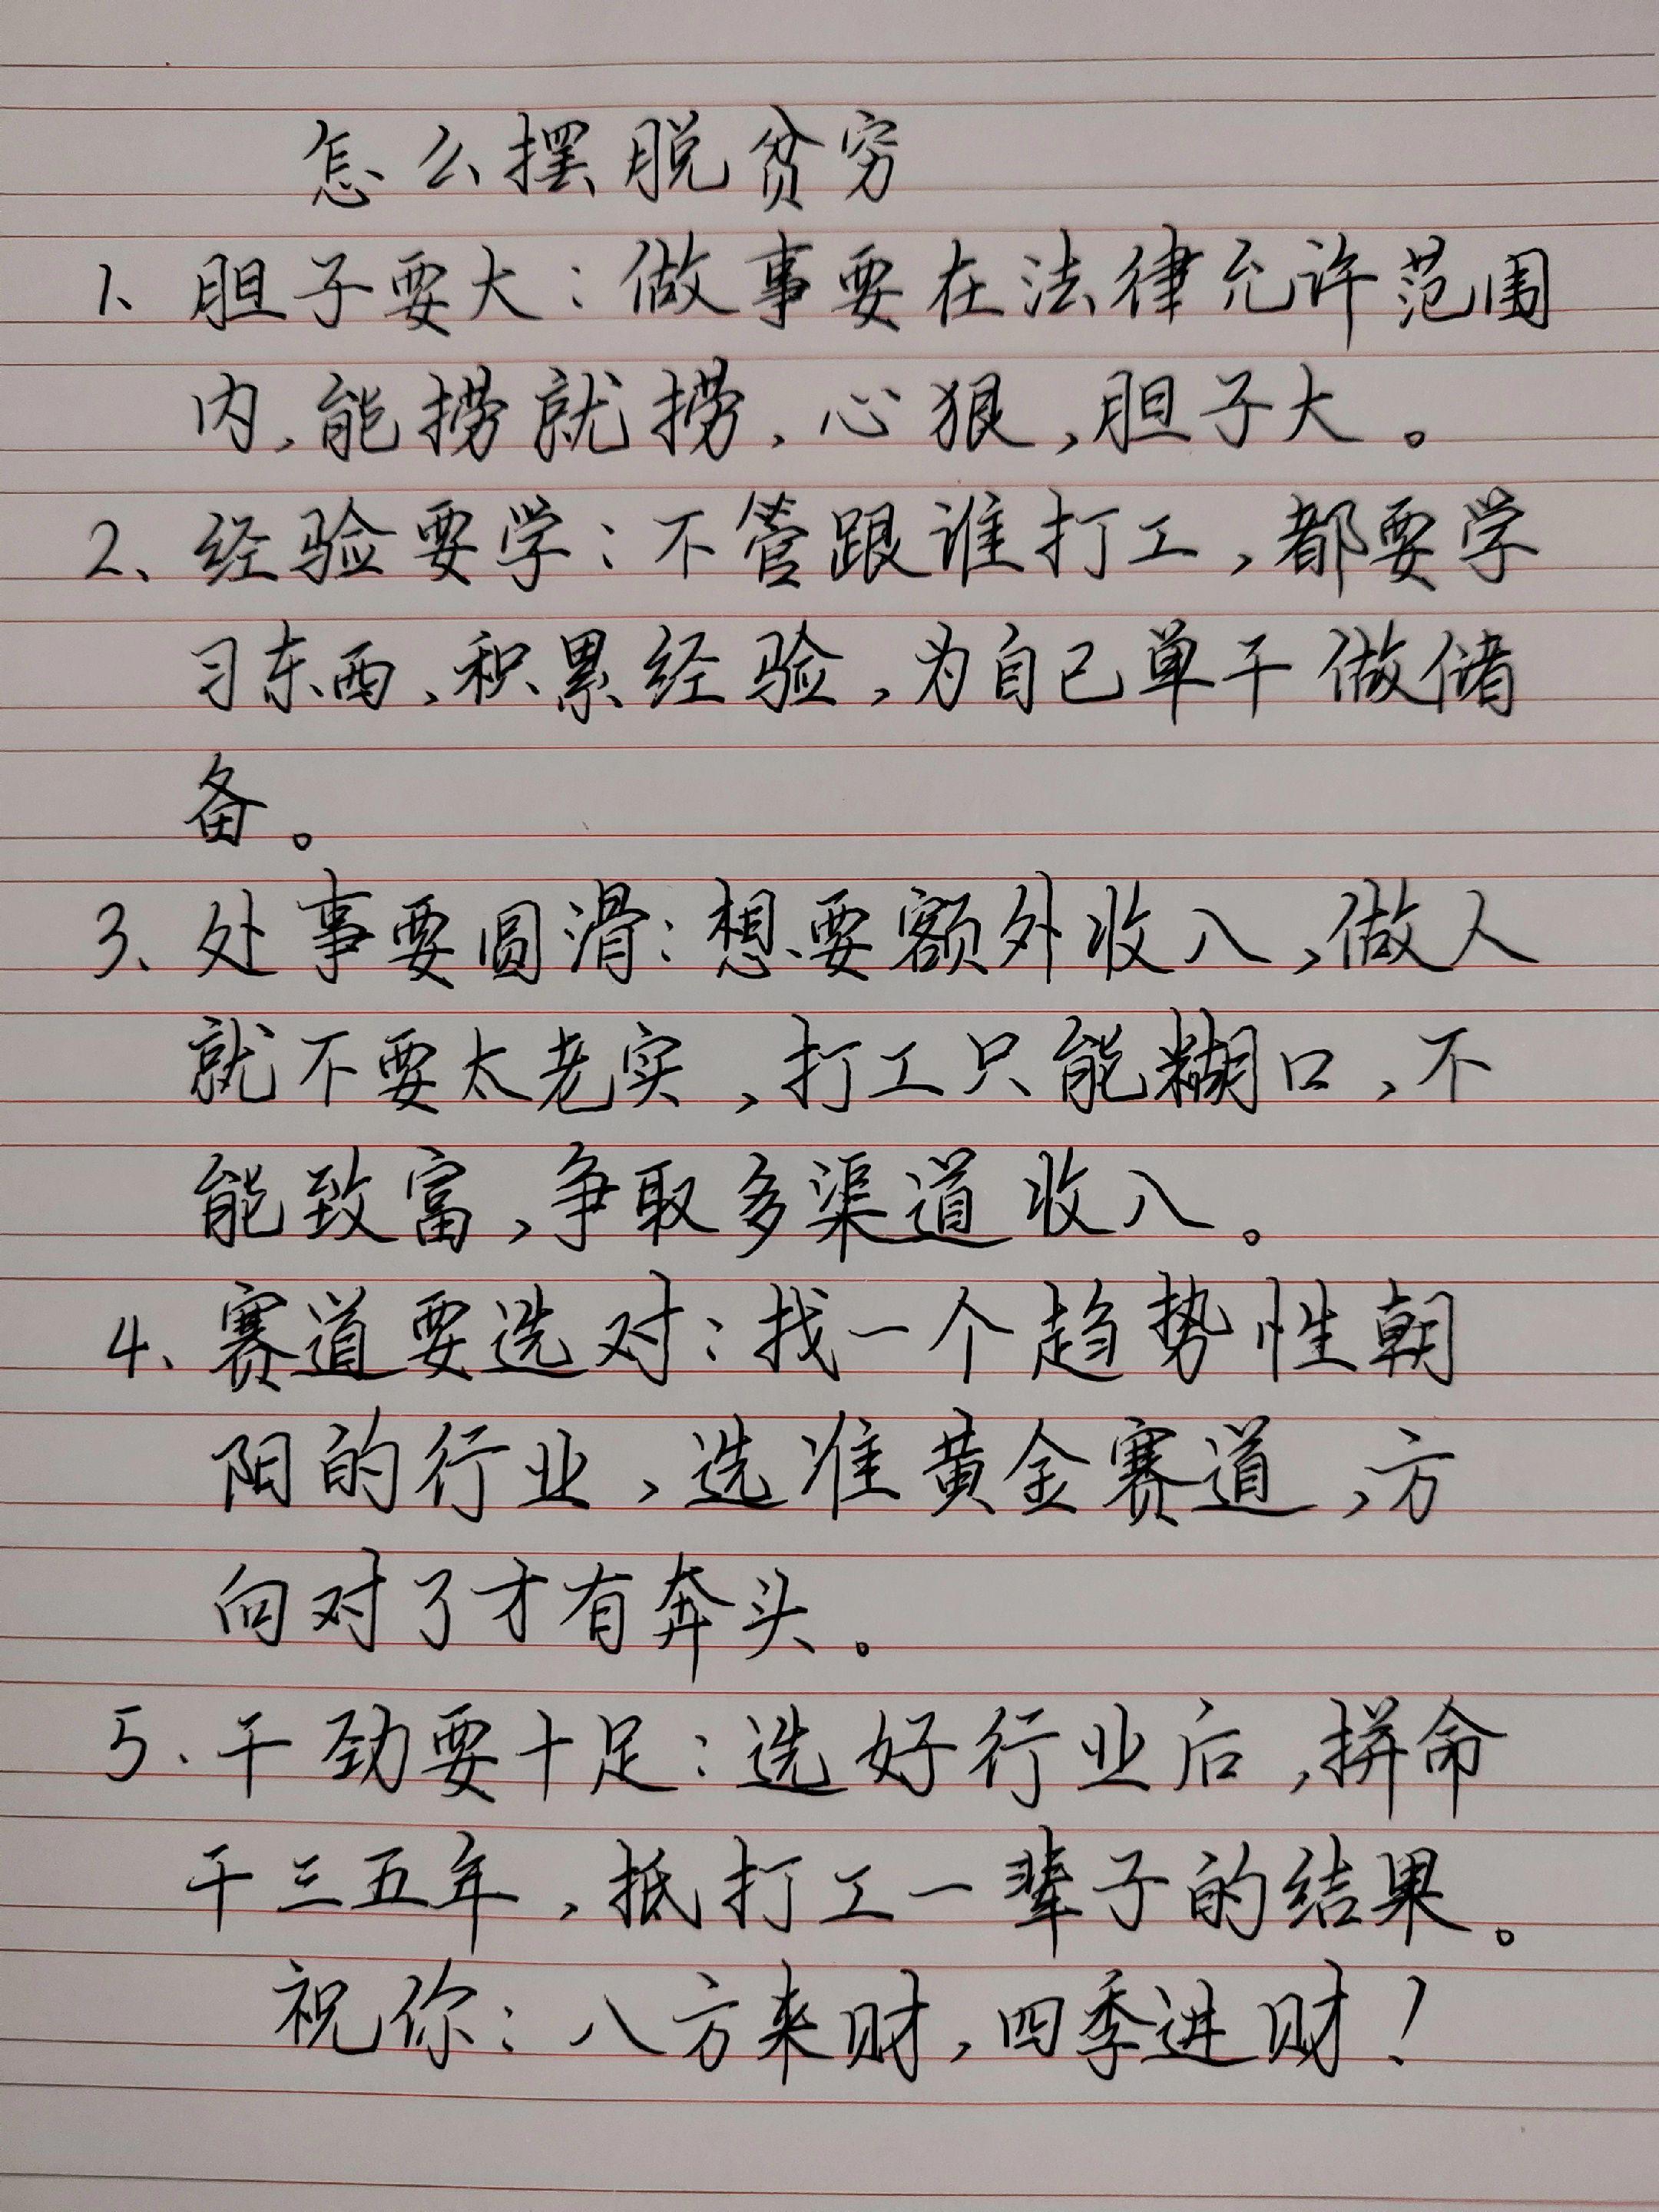 怎么摆脱贫穷
1、胆子要大：做事要在法律允许范围
内，能捞就捞，心狠，胆子大。
2、经验要学：不管跟谁打工，都要学
习东西、积累经验，为自己单干做储
备。
3、处事要圆滑：想要额外收入，做人
就不要太老实，打工只能糊口，不
能致富，争取多渠道收入。
4、赛道要选对：找一个趋势性朝
阳的行业，选准黄金赛道，方
向对了才有奔头。
5、干劲要十足：选好行业后，拼命
干三五年，抵打工一辈子的结果。
祝你：八方来财，四季进财！